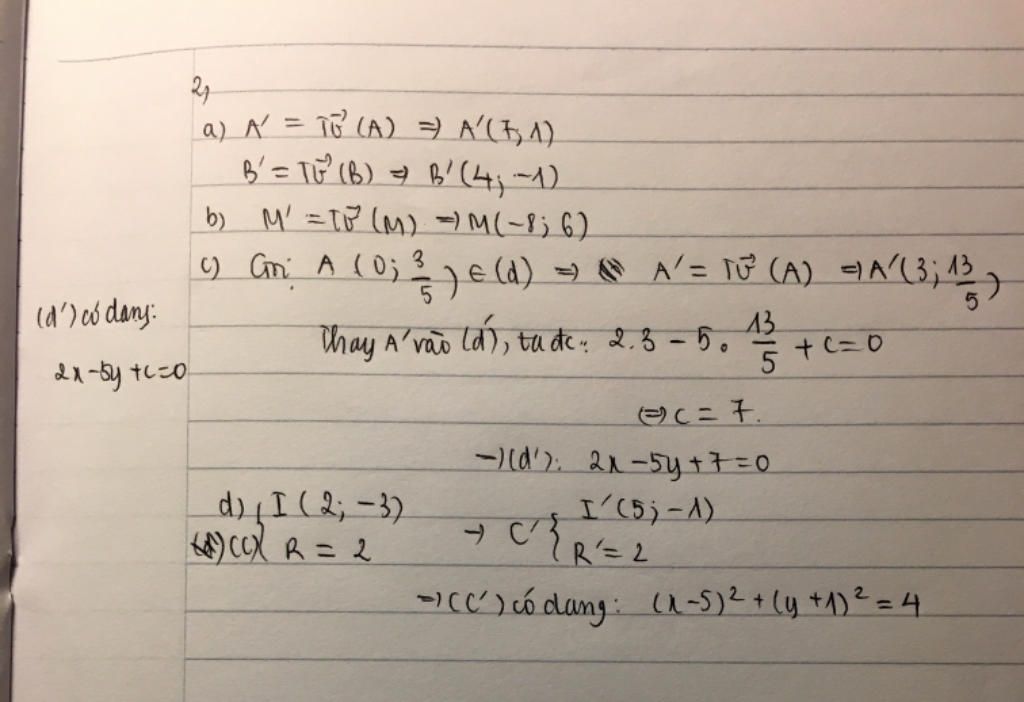 2,
a) A' = Tv⃗ (A) ⇒ A'(7; 1)
B' = Tv⃗ (B) ⇒ B'(4; -1)
b) M' = Tv⃗ (M) ⇒ M(-8; 6)
c) Gọi A (0; 3/5) ∈ (d) ⇒ A' = Tv⃗ (A) ⇒ A'(3; 13/5)
(d') có dạng:
2x - 5y + c = 0
Thay A' vào (d'), ta đc: 2.3 - 5. 13/5 + c = 0
⇔ c = 7.
→ (d'): 2x - 5y + 7 = 0
d) (C) { I (2; -3) R = 2 → C' { I'(5; -1) R' = 2
⇒ (C') có dạng: (x-5)² + (y+1)² = 4